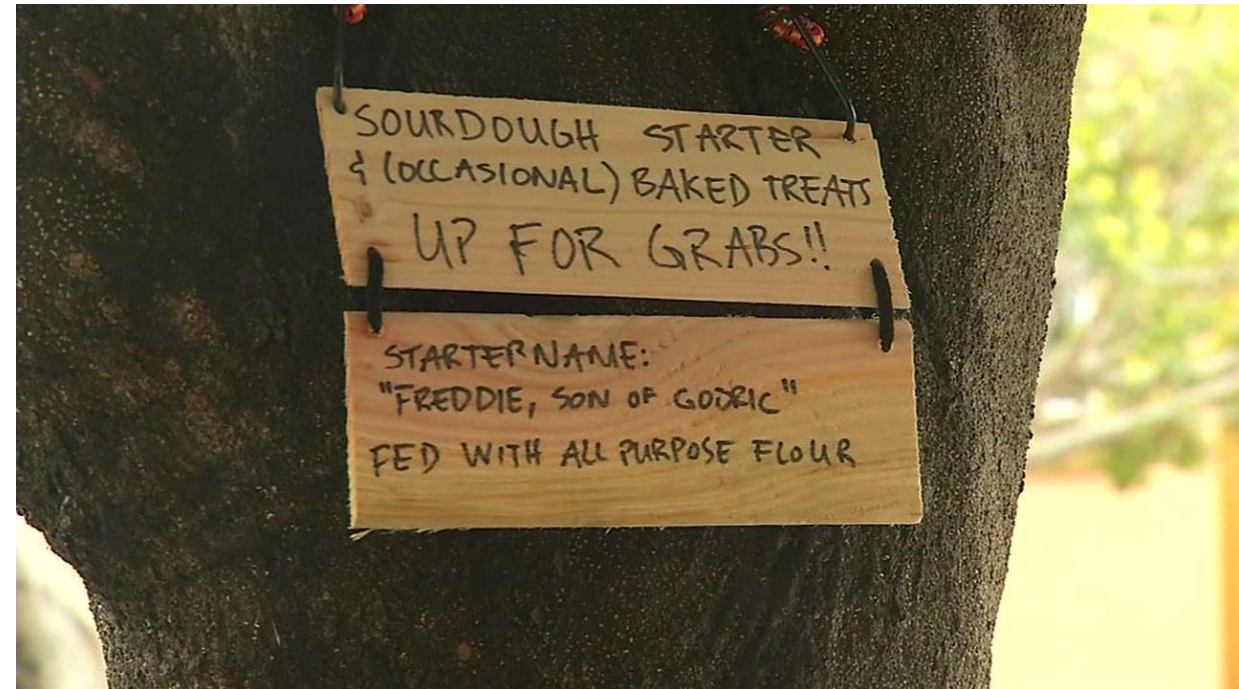 SOURDOUGH STARTER
& (OCCASIONAL) BAKED TREATS
UP FOR GRABS!!
STARTER NAME:
"FREDDIE, SON OF GODRIC"
FED WITH ALL PURPOSE FLOUR